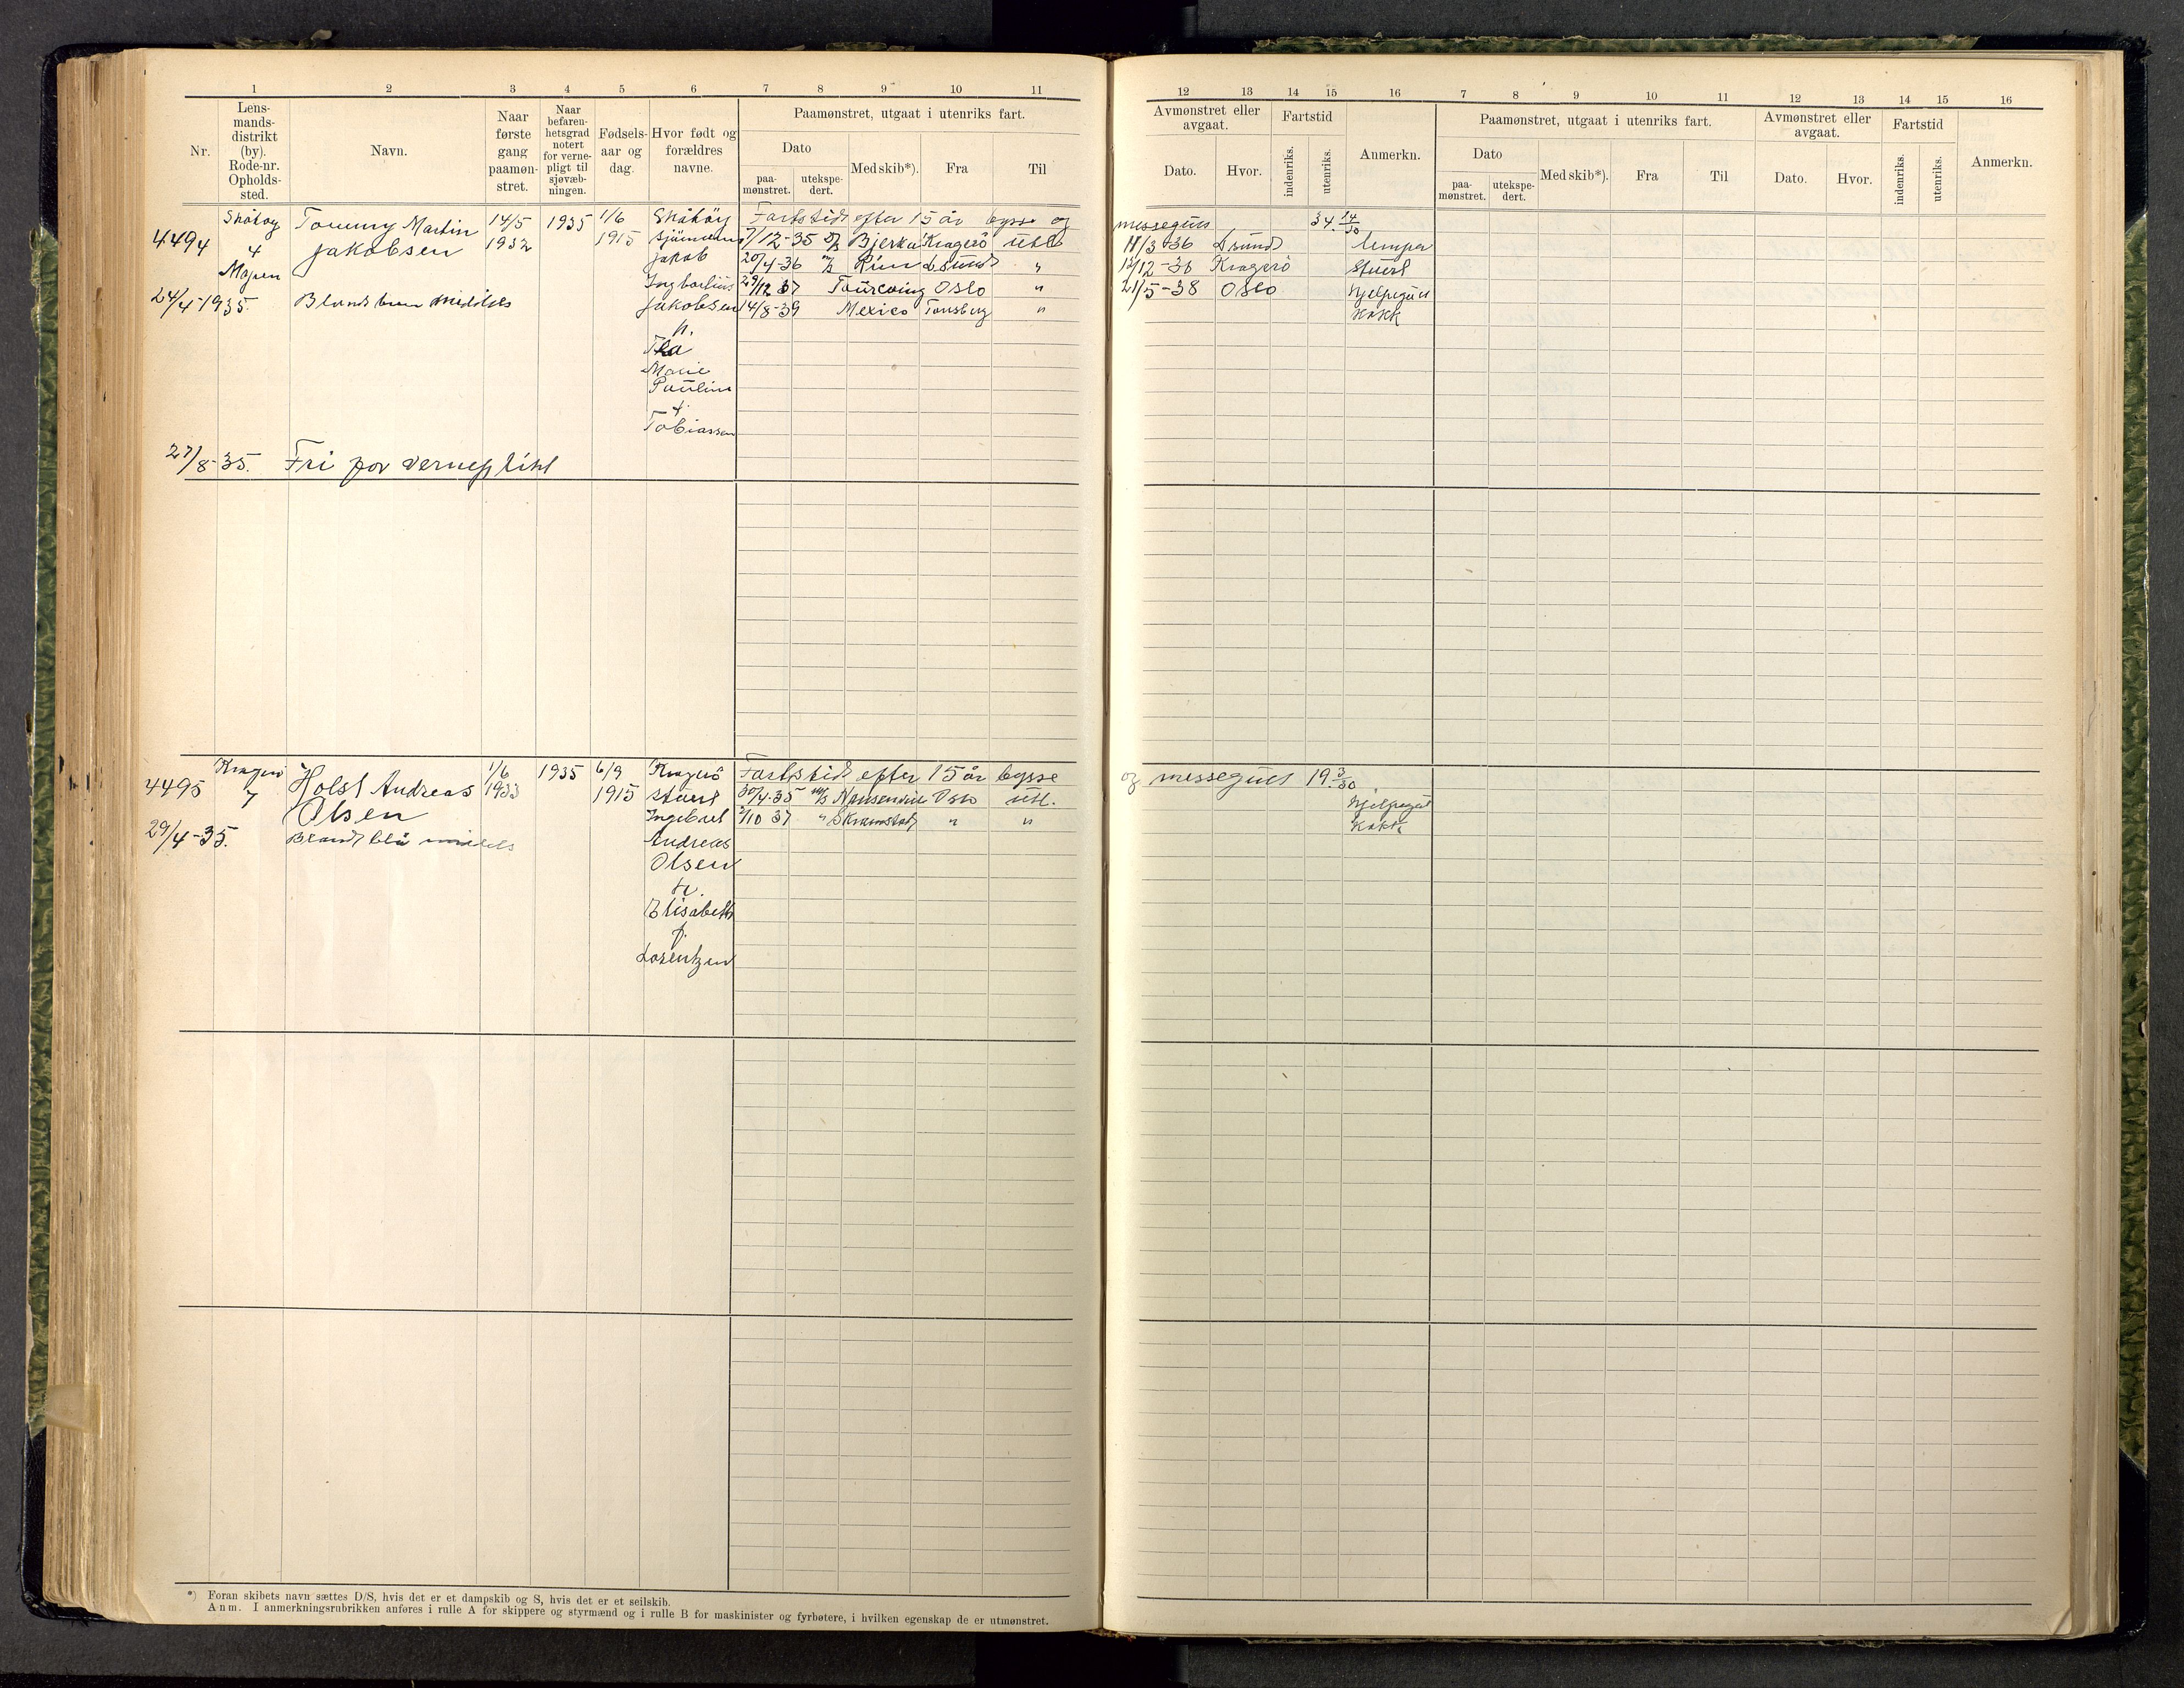 1 2 3 4 5 6 7 8 9 10 11
Nr.
Lens-
mands-
distrikt
(by).
Rode-nr.
Opholds-
sted.
Navn.
Naar
første
gang
paamøn-
stret.
Naar
befaren-
hetsgrad
notert
for verne-
pligt til
sjøvæb-
ningen.
Fødsels-
aar og
dag.
Hvor født og
forældres
navne.
Paamønstret, utgaat i utenriks fart.
Dato
paa-
mønstret.
utekspe-
dert.
Med skib*).
Fra
Til
12 13 14 15 16 7 8 9 10 11 12 13 14 15 16
Avmønstret eller
avgaat.
Dato.
Hvor.
Fartstid
indenriks.
utenriks.
Anmerkn.
Paamønstret, utgaat i utenriks fart.
Dato
paa-
mønstret.
utekspe-
dert.
Med skib*).
Fra
Til
Avmønstret eller
avgaat.
Dato.
Hvor.
Fartstid
indenriks.
utenriks.
Anmerkn.
4494
24/4 1935.
Skåtøy
4
Tommy Martin
Jakobsen
14/5
1932
1935
1/6
1915
Skåtöy
sjömann
Jakob
Jakobsen
h.
Tea
Marie
Pauline
f.
Tobiassen
Fartstid efter 15 år bysse og
messegutt 34 14/30
7/12-35 D/S Bjerka Kragerö Utl.
20/4-36 Oslo "
Tourcoing Oslo "
14/8-39 Mexico Tønsberg "
/3-36
/12-36 Kragerö Stuert
21/5-38 Oslo Hjelpegutt
Kokk
27/8-35. Fri for verneplikt
4495
29/4-35.
Kragerö
7
Holst Andreas
Olsen
1/6
1933
1935
6/9
1915
Kragerö
stuert
Andreas
Olsen
h.
Elisabeth
f.
Lorentzen
Fartstid efter 15 år bysse
og messegutt 19 3/30
30/4-35 M/S Oslo Utl.
/10 37 " " "
Hjelpegutt
Kokk
*) Foran skibets navn sættes D/S, hvis det er et dampskib og S, hvis det er et seilskib.
Anm. I anmerkningsrubrikken anføres i rulle A for skippere og styrmænd og i rulle B for maskinister og fyrbøtere, i hvilken egenskap de er utmønstret.